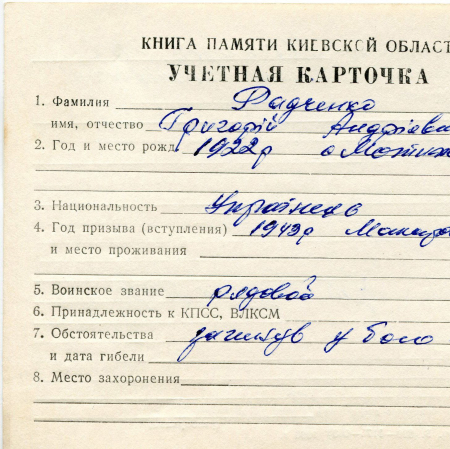 КНИГА ПАМЯТИ КИЕВСКОЙ ОБЛАСТ
УЧЕТНАЯ КАРТОЧКА
1. Фамилия Радченко
имя, отчество Григорій Андріеви
2. Год и место рожд 1922р
3. Национальность Українець
4. Год призыва (вступления) 1943р
и место проживания
5. Воинское звание рядовой
6. Принадлежность к КПСС, ВЛКСМ
7. Обстоятельства загинув у бою
и дата гибели
8. Место захоронения